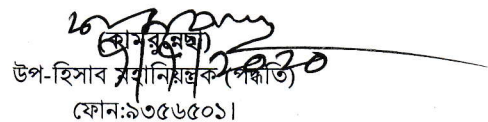 (কামরুন্নেছা)
উপ-হিসাব মহানিয়ন্ত্রক (পদ্ধতি)
ফোন:৯৩৫৬৫০১।